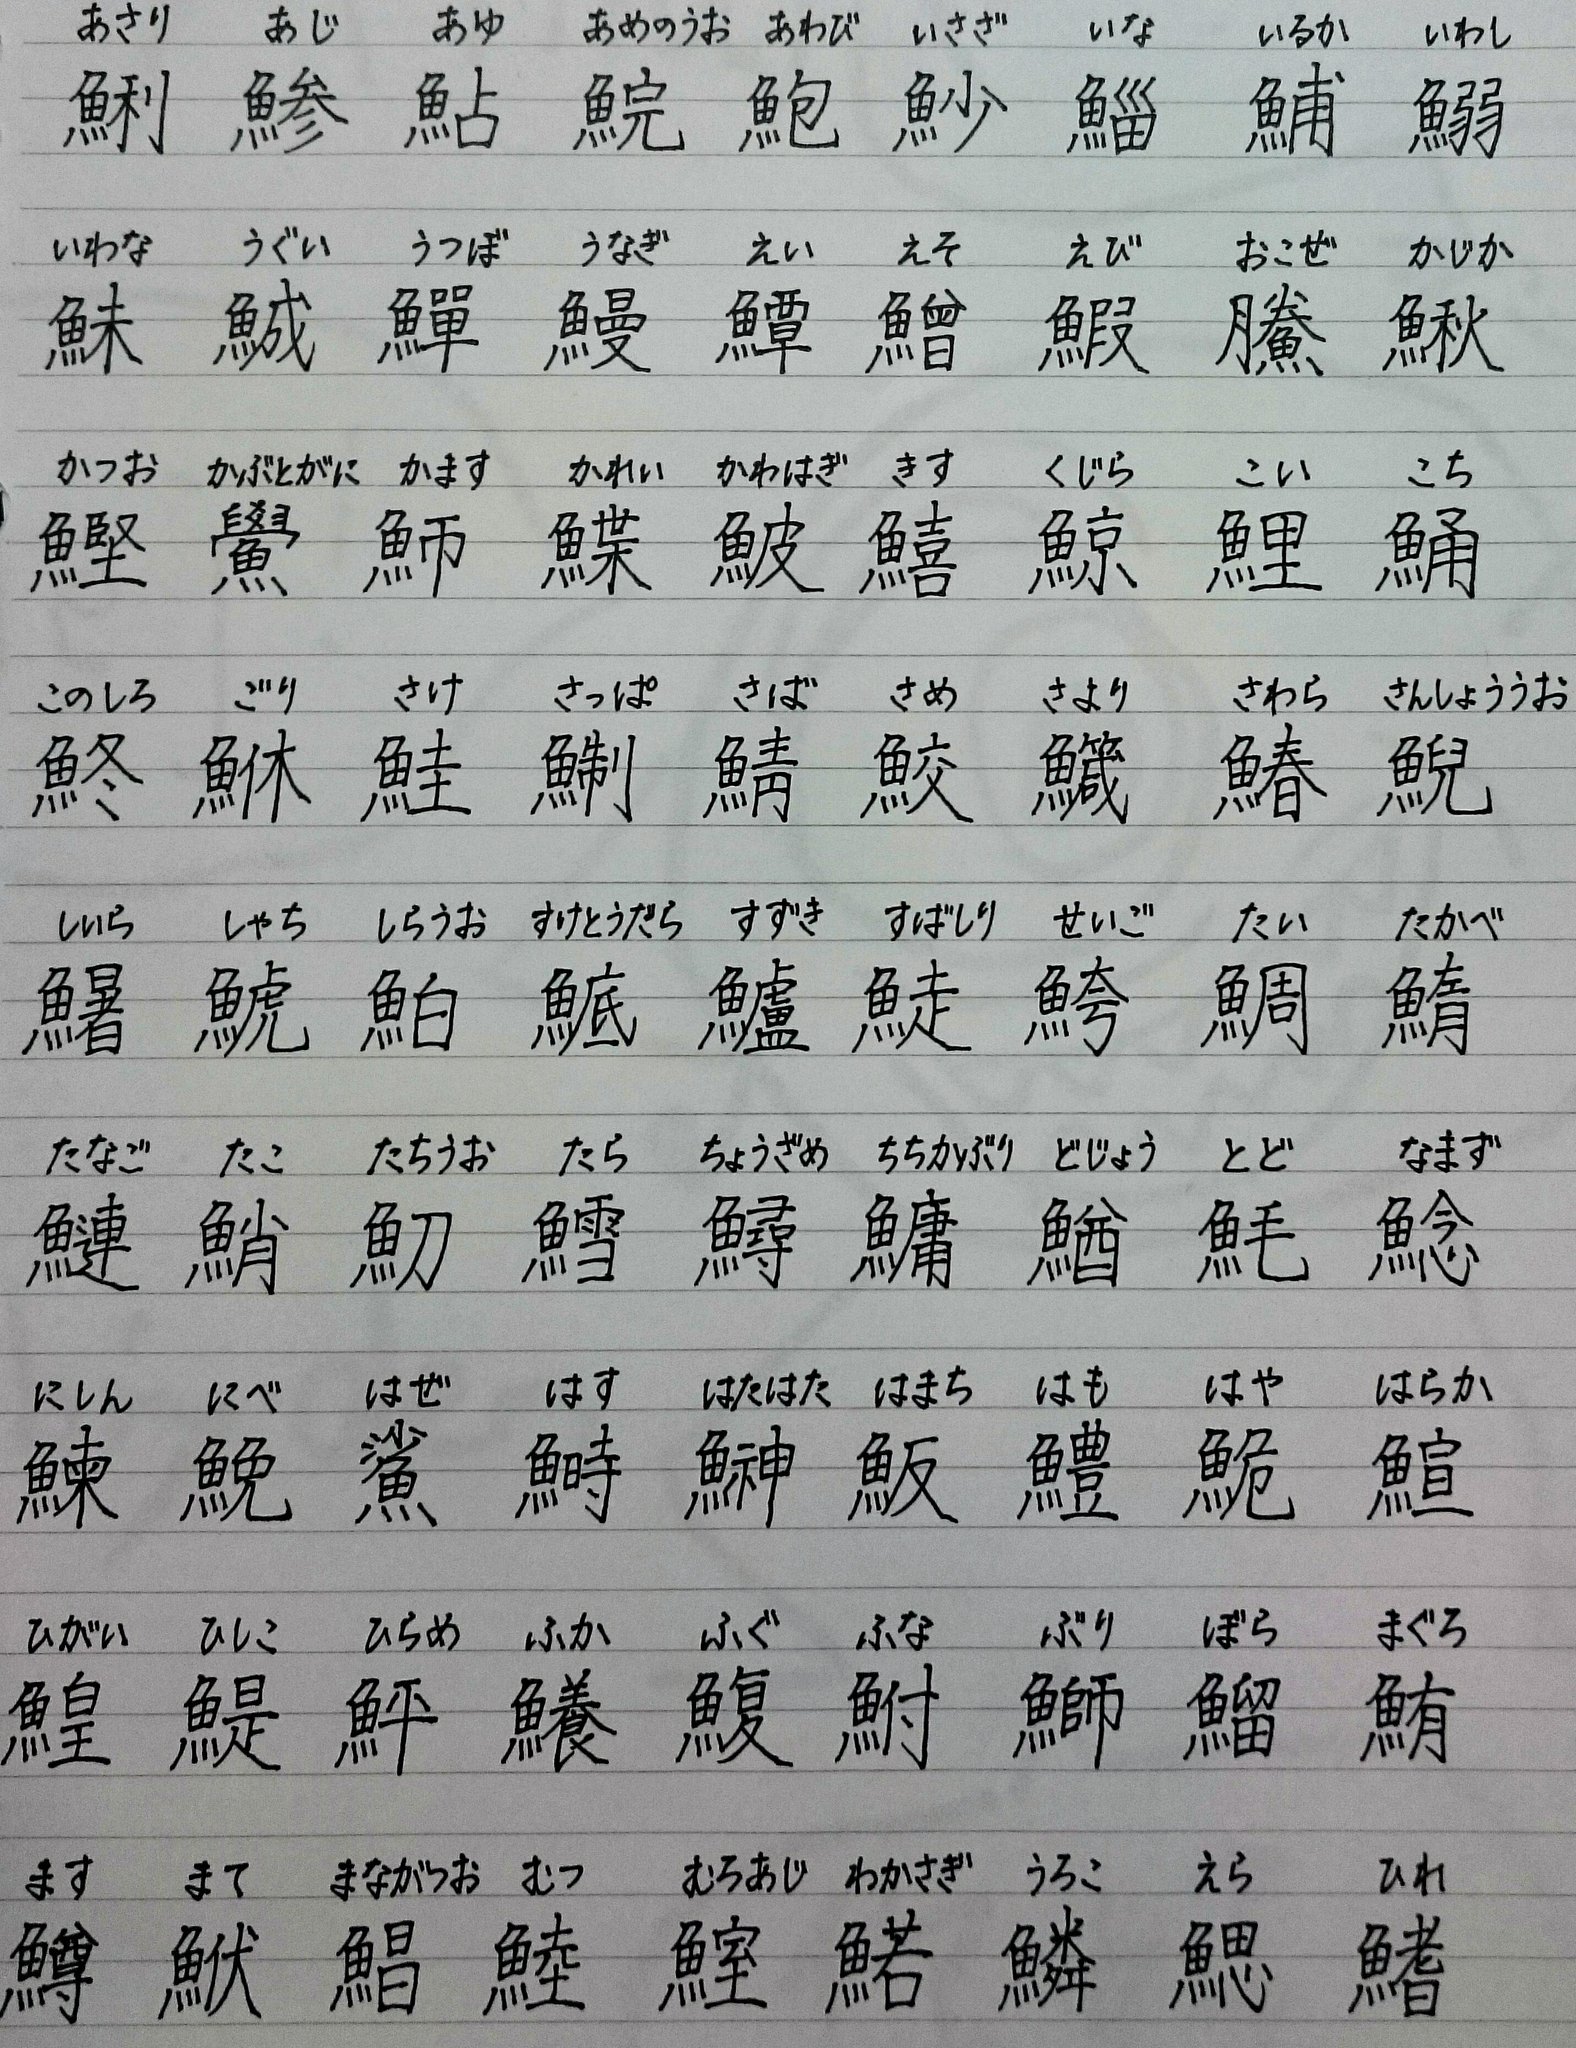 あさり あじ あゆ あめのうお あわび いさざ いな いるか いわし
鯏 鯵 鮎 鯇 鮑 魦 鯔 鯆 鰯
いわな うぐい うつぼ うなぎ えい えそ えび おこぜ かじか
鮇 鯎 鱓 鰻 鱏 鱛 鰕 鰧 鰍
かつお かぶとがに かます かれい かわはぎ きす くじら こい こち
鰹 鱟 魳 鰈 鮍 鱚 鯨 鯉 鯒
このしろ ごり さけ さっぱ さば さめ さより さわら さんしょううお
鮗 鮴 鮭 鯯 鯖 鮫 鱵 鰆 鯢
しいら しゃち しらうお すけとうだら すずき すばしり せいご たい たかべ
鱰 鯱 鮊 鯳 鱸 鯐 鮬 鯛 鰖
たなご たこ たちうお たら ちょうざめ ちちかぶり どじょう とど なまず
鰱 鮹 魛 鱈 鱘 鱅 鰌 魹 鯰
にしん にべ はぜ はす はたはた はまち はも はや はらか
鰊 鮸 鯊 鰣 鰰 魬 鱧 鮠 鰚
ひがい ひしこ ひらめ ふか ふぐ ふな ぶり ぼら まぐろ
鰉 鯷 鮃 鱶 鰒 鮒 鰤 鰡 鮪
ます まて まながつお むつ むろあじ わかさぎ うろこ えら ひれ
鱒 鮲 鯧 鯥 鰘 鰙 鱗 鰓 鰭